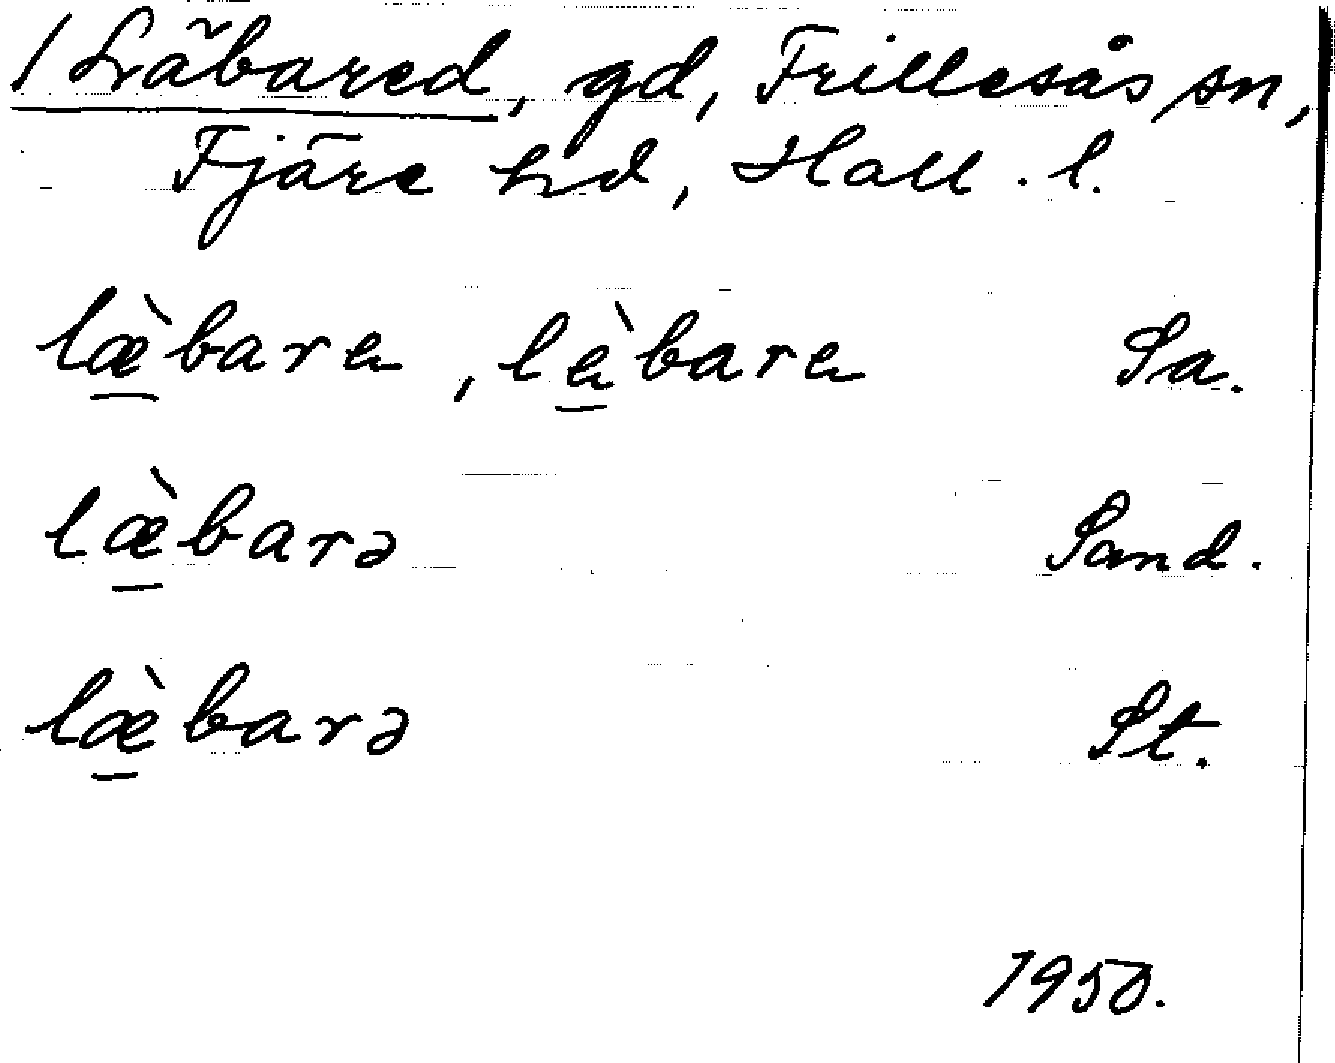 / Läbared, gd, Frillesås sn,
Fjäre hd, Hall. l.
læ̀bara, là̱bara Sa.
læ̀barə Sand.
læ̀barə St.
1950.